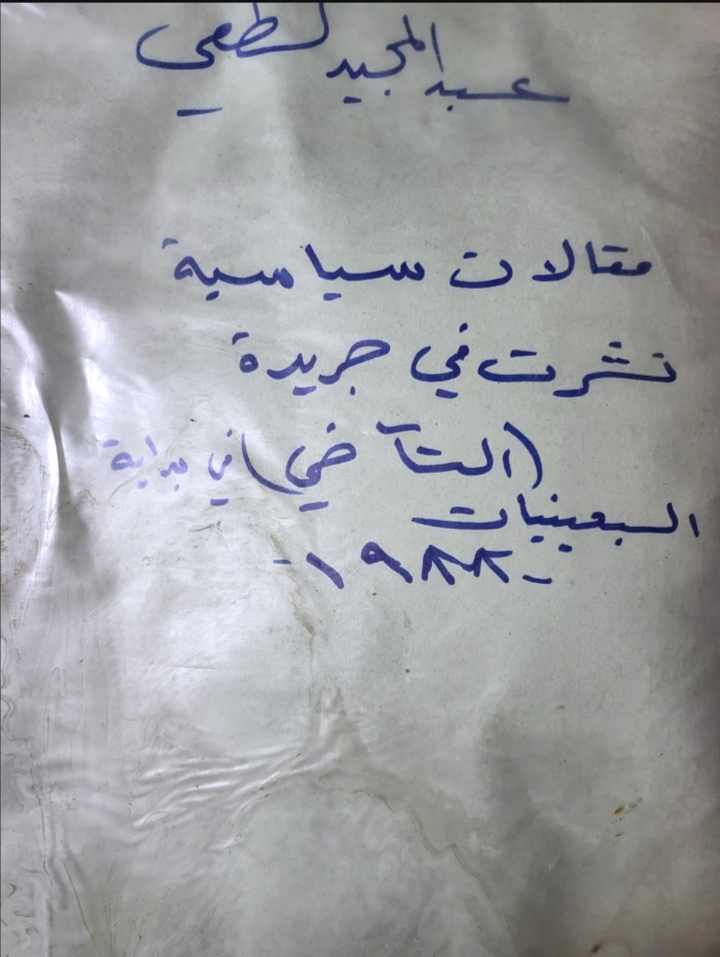 عبد المجيد لطفي
مقالات سياسية
نشرت في جريدة
(التآخي) في بداية
السبعينيات
- ١٩٨٨ -